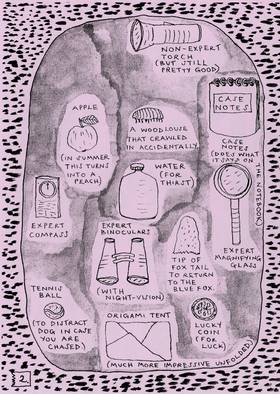 NON-EXPERT
TORCH
(BUT STILL
PRETTY GOOD)
CASE
NOTES
CASE
NOTES
(DOES WHAT
IT SAYS ON
THE NOTEBOOK)
APPLE
(IN SUMMER
THIS TURNS
INTO A
PEACH)
A WOODLOUSE
THAT CRAWLED
IN ACCIDENTALLY
WATER
(FOR
THIRST)
EXPERT
COMPASS
EXPERT
BINOCULARS
(WITH
NIGHT-VISION)
TIP OF
FOX TAIL
TO RETURN
TO THE
BLUE FOX.
EXPERT
MAGNIFYING
GLASS
TENNIS
BALL
(TO DISTRACT
DOG IN CASE
YOU ARE
CHASED.)
ORIGAMI TENT
(MUCH MORE IMPRESSIVE UNFOLDED)
LUCKY
COIN
(FOR
LUCK)
2